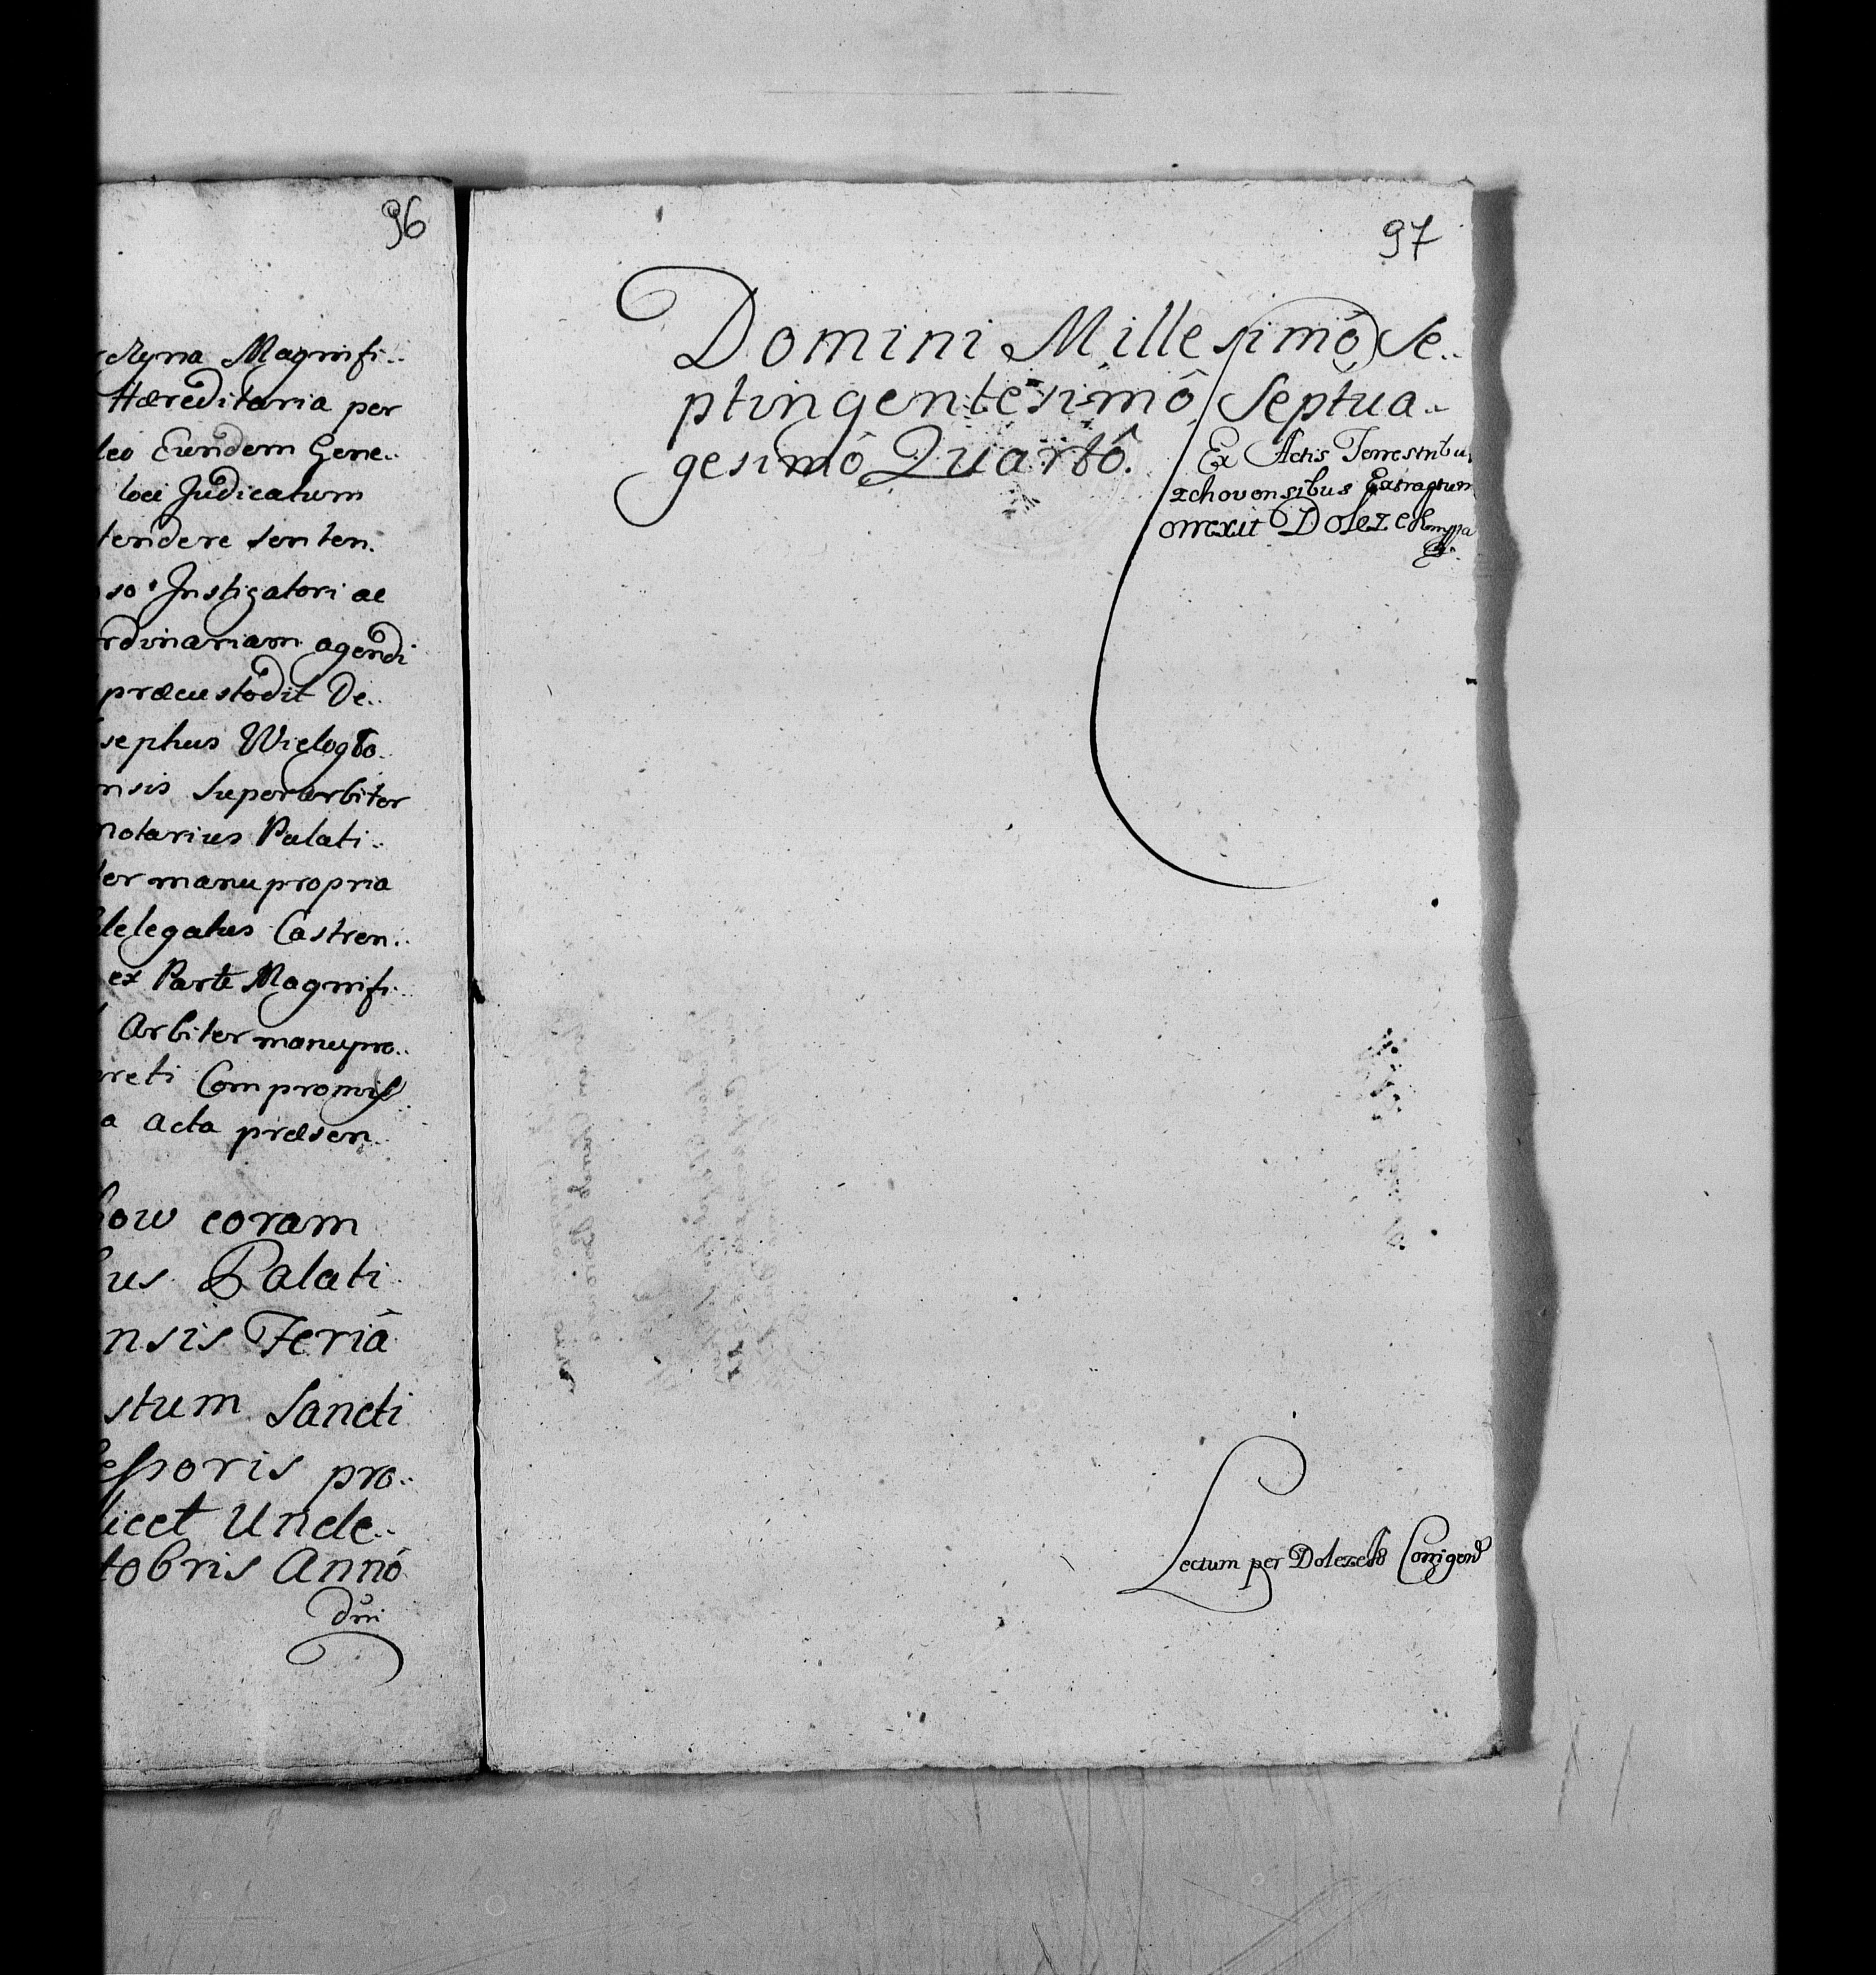 96
Magnifi..
Hæreditaria per
Eundem Gene..
loci Judicatum
tendere senten.
Instigatori ac
rdinariam agendi
præcustodit De..
sephus Wielogło..
nsis Superarbiter
notarius Palati..
manu propria
delegatus Castren..
ex Parte Magnifi..
Arbiter manupro..
reti Compromiss..
a Acta præsen..
how coram
bus Palati
nsis Feriâ
stum Sancti
fessoris pro..
licet Unde..
tobris Annô
Dni
97
Domini Millesimô Se..
ptingentesimô Septua..
gesimô Quartô.
Ex Actis Terrestribus
zchoviensibus Extractum
orrexit Dolezel
Lectum per Dolezel